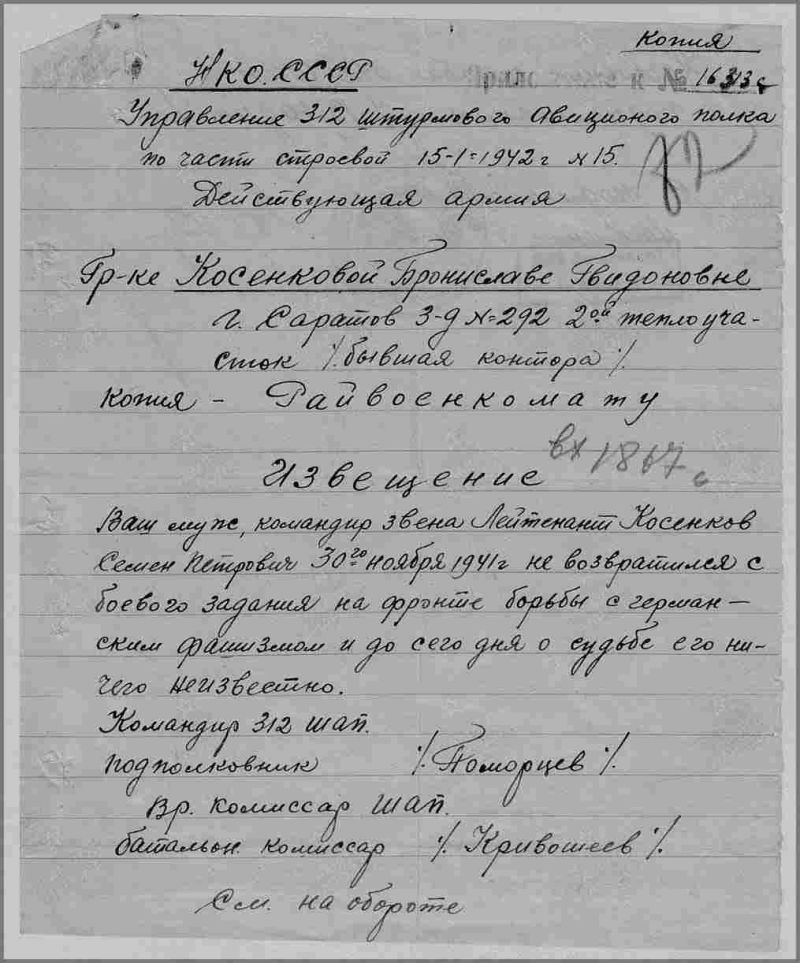 Копия
НКО. СССР
Приложение к № 16313с
Управление 312 штурмового Авиционого полка
по части строевой 15-1-1942г N15.
Действующая армия
Гр-ке Косенковой Брониславе Гвидоновне
г. Саратов З-д N=292 2ой теплоуча-
сток /. бывшая контора /.
Копия - Райвоенкомату
вх 1867с
Извещение
Ваш муж, командир звена Лейтенант Косенков
Семен Петрович 30го ноября 1941г не возвратился с
боевого задания на фронте борьбы с герман-
ским фашизмом и до сего дня о судьбе его ни-
чего неизвестно.
Командир 312 шап.
подполковник /. Поморцев /.
Вр. комиссар шап.
батальон. комиссар /. Кривошеев /.
См. на обороте